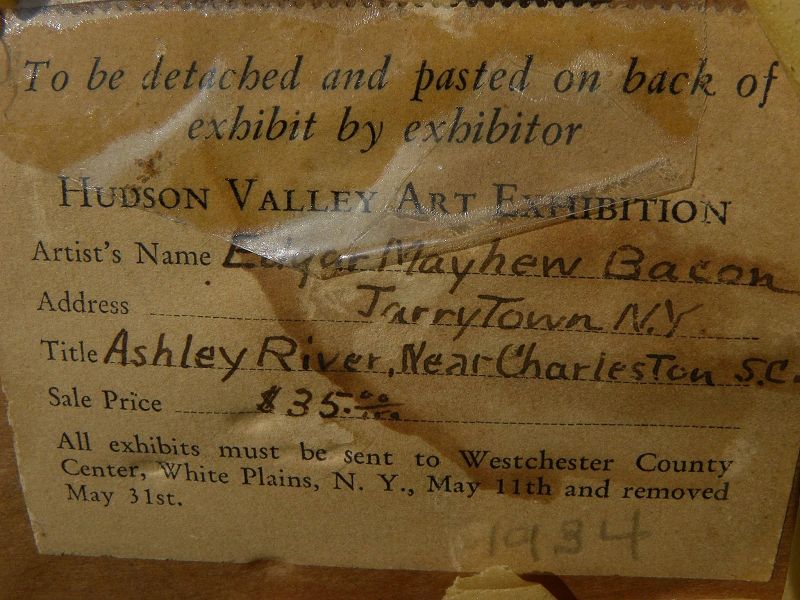 To be detached and pasted on back of
exhibit by exhibitor
HUDSON VALLEY ART EXHIBITION
Artist's Name Edgar Mayhew Bacon
Address TarryTown N.Y.
Title Ashley River, Near Charleston S.C.
Sale Price $35.00/100
All exhibits must be sent to Westchester County
Center, White Plains, N. Y., May 11th and removed
May 31st.
1934